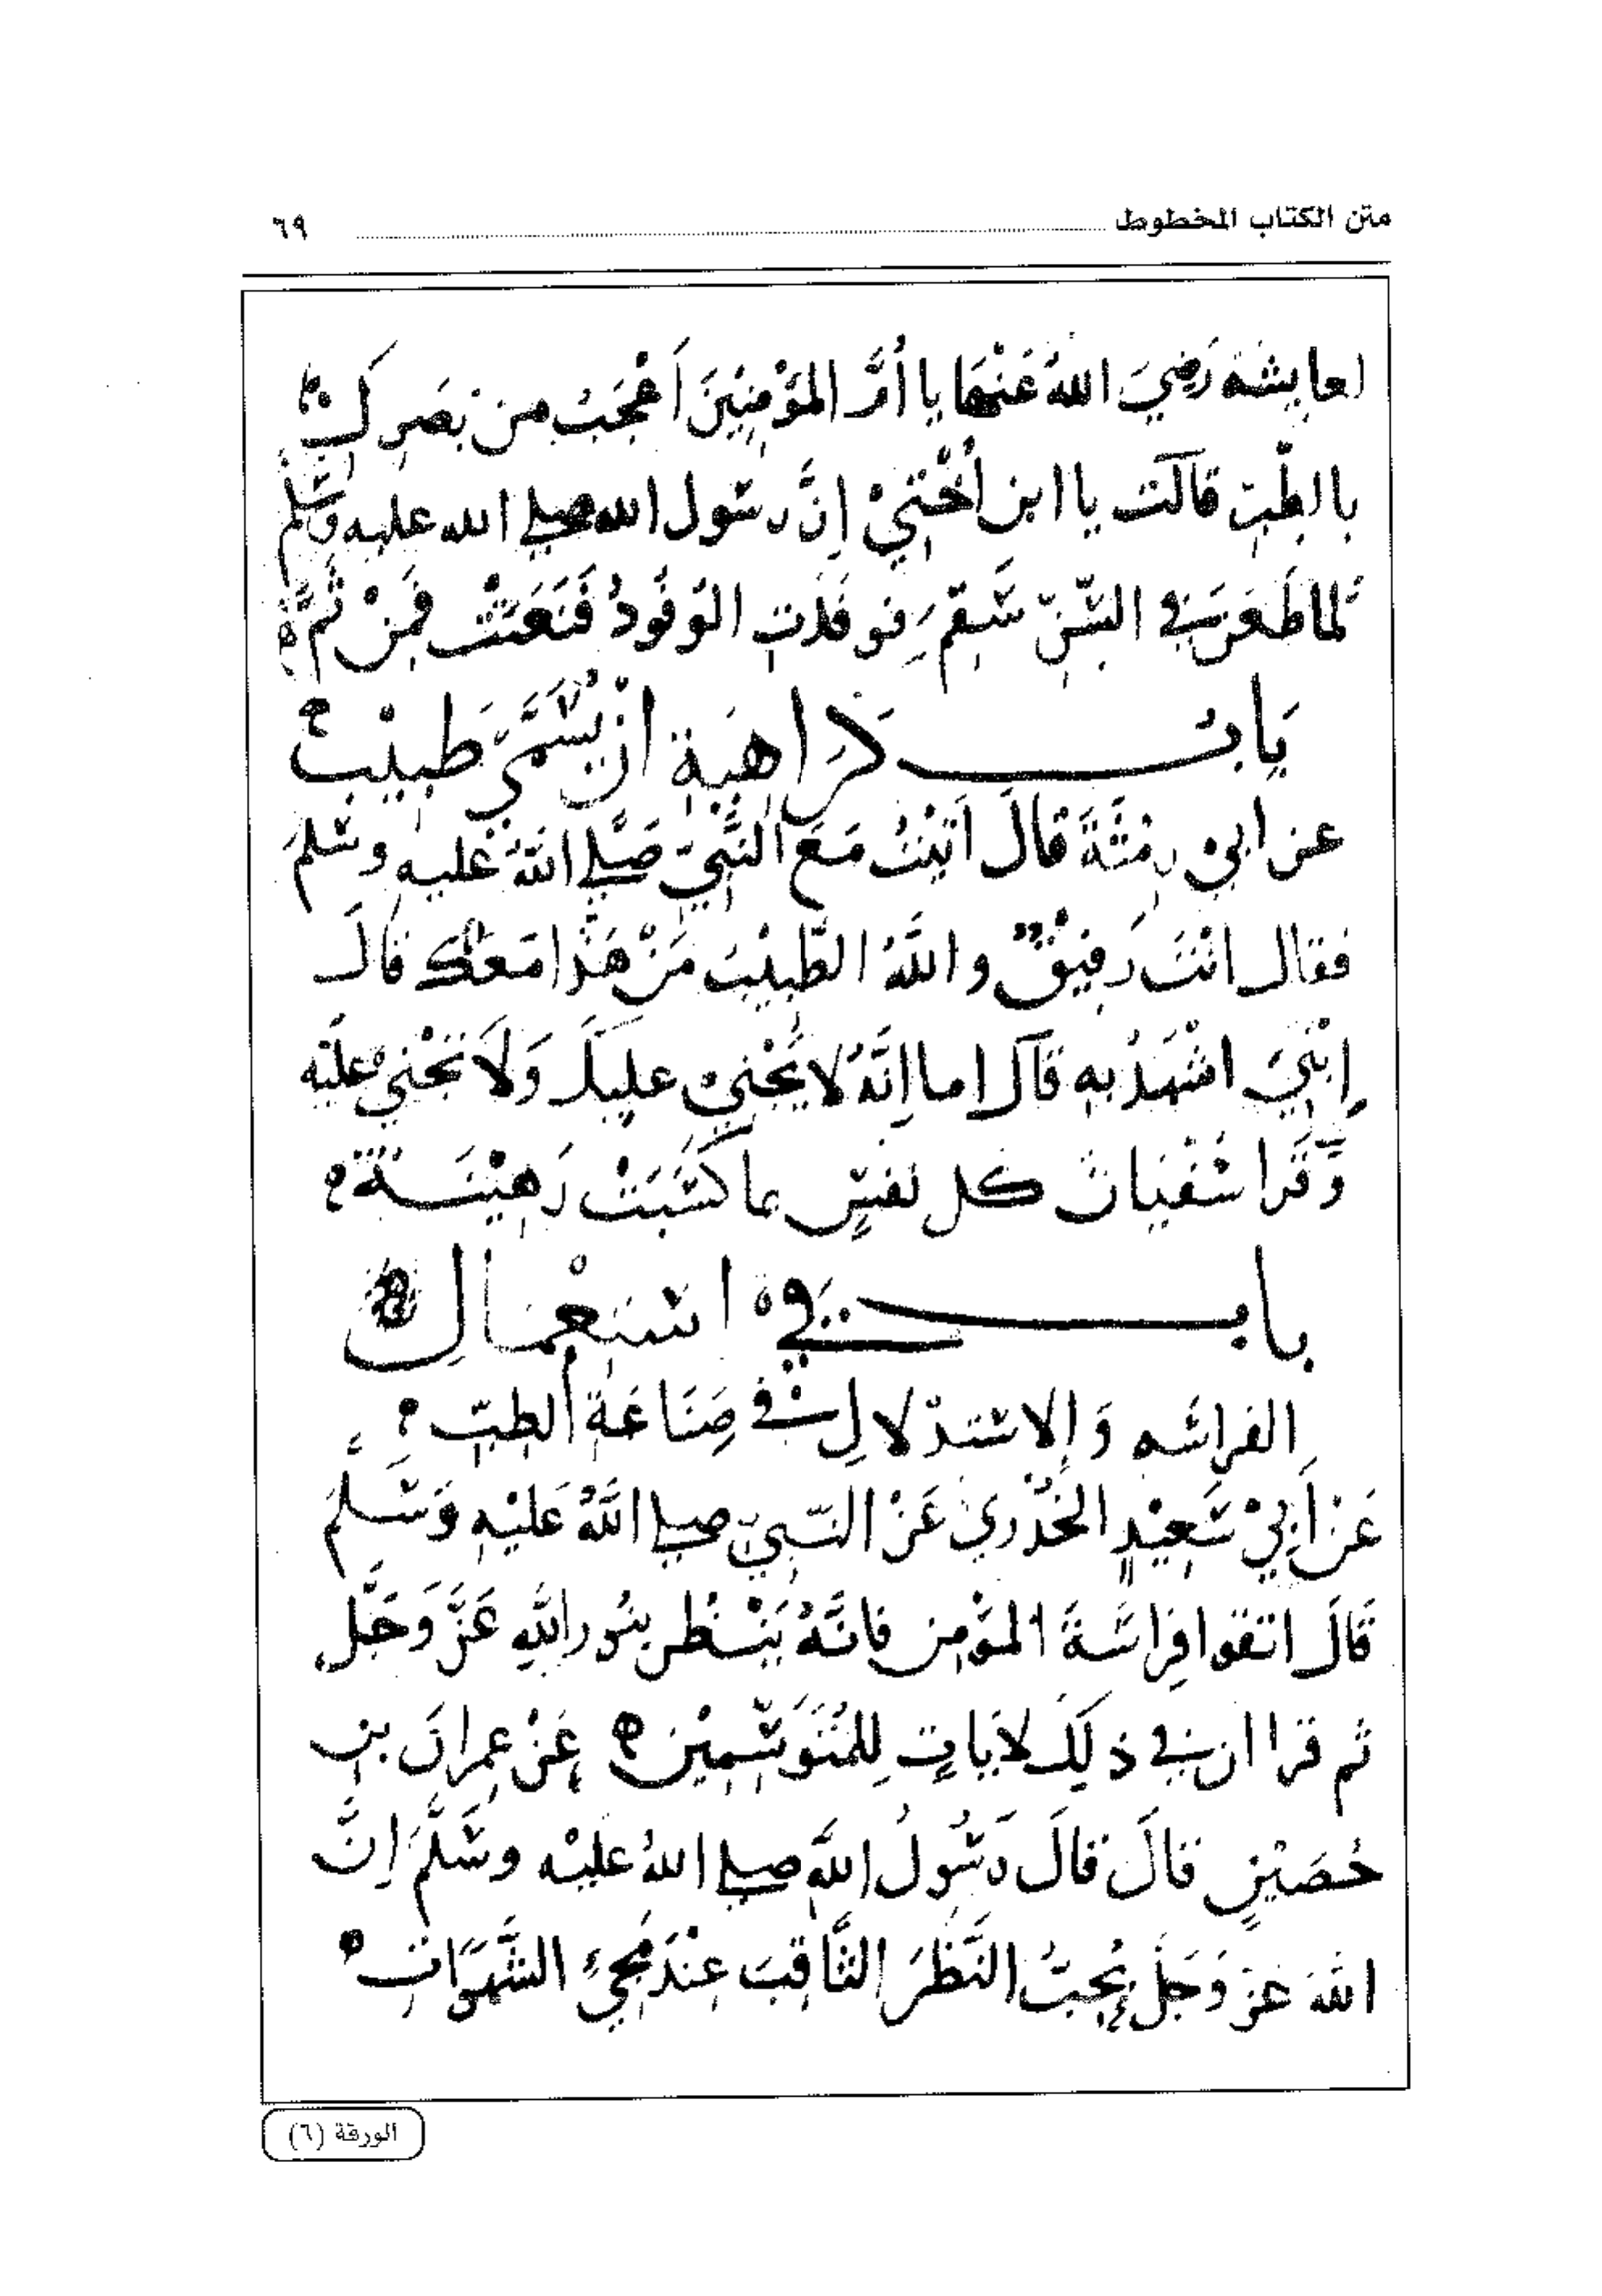 متن الكتاب المخطوط ٦٩
لعايشه رَضِيَ اللهُ عَنْهما يا أمَّ المؤمِنِيْنَ اَعْجَبُ مِن بَصَرِكِ
بالطِّبّ قالَت يا ابن اُخْتِيْ اِنَّ رسُول الله صلى الله عليه وسَلم
لما طَعَن في السِّنّ سَقِمَ فوفدَت الوُفُودُ فَنَعَتَتْ فَمِنْ ثَمَّ
بَابُ كَراهِيَة انْ يُسَمَّى طَبِيْب
عن ابىْ رِمْثَةَ قَالَ اَتَيْتُ مَعَ النَّبِيّ صَلَّى اللهُ عَليه وسَلمَ
فقال انْتَ رَفِيْقٌ واللَّهُ الطَّبِيْبُ مَنْ هَذَا مَعَكَ قالَ
اِبْنِيَ اشْهَدُ به قَالَ اما اِنَّهُ لا يَجْنِيْ عليكَ وَلَا تَجْنِيْ عَلَيْه
وَّقَرا سُفْيَانُ كل نفسٍ بما كَسَبَتْ رَهِيْنَةٌ
باب في اسْتِعْمَالِ
الفِراسَه وَالاسْتدْلالِ في صِنَاعَةِ الطِبّ
عَنْ أَبِيْ سَعِيْدٍ الخُدْرِي عَنْ النَّبِيّ صلى اللَّهُ عَليْهِ وَسَلَّمَ
قَالَ اتقوا فِرَاسَةَ المؤمِن فانَّهُ يَنْظُر بِنُور اللهِ عَزَّ وَجَلَّ
ثم قرا ان في ذلِكَ لاَيَاتٍ لِلمُتَوَسِّمِيْن عَنْ عِمرانَ بن
حُصَيْنٍ قالَ قالَ رَسُولُ اللَّه صلى اللهُ عليْه وسَلَّمَ اِنَّ
اللهَ عز وَجَلَّ يُحِبُّ النَّظَرَ الثَّاقِبَ عِنْدَ مَجِيءِ الشَّهَوَاتِ
الورقة (٦)